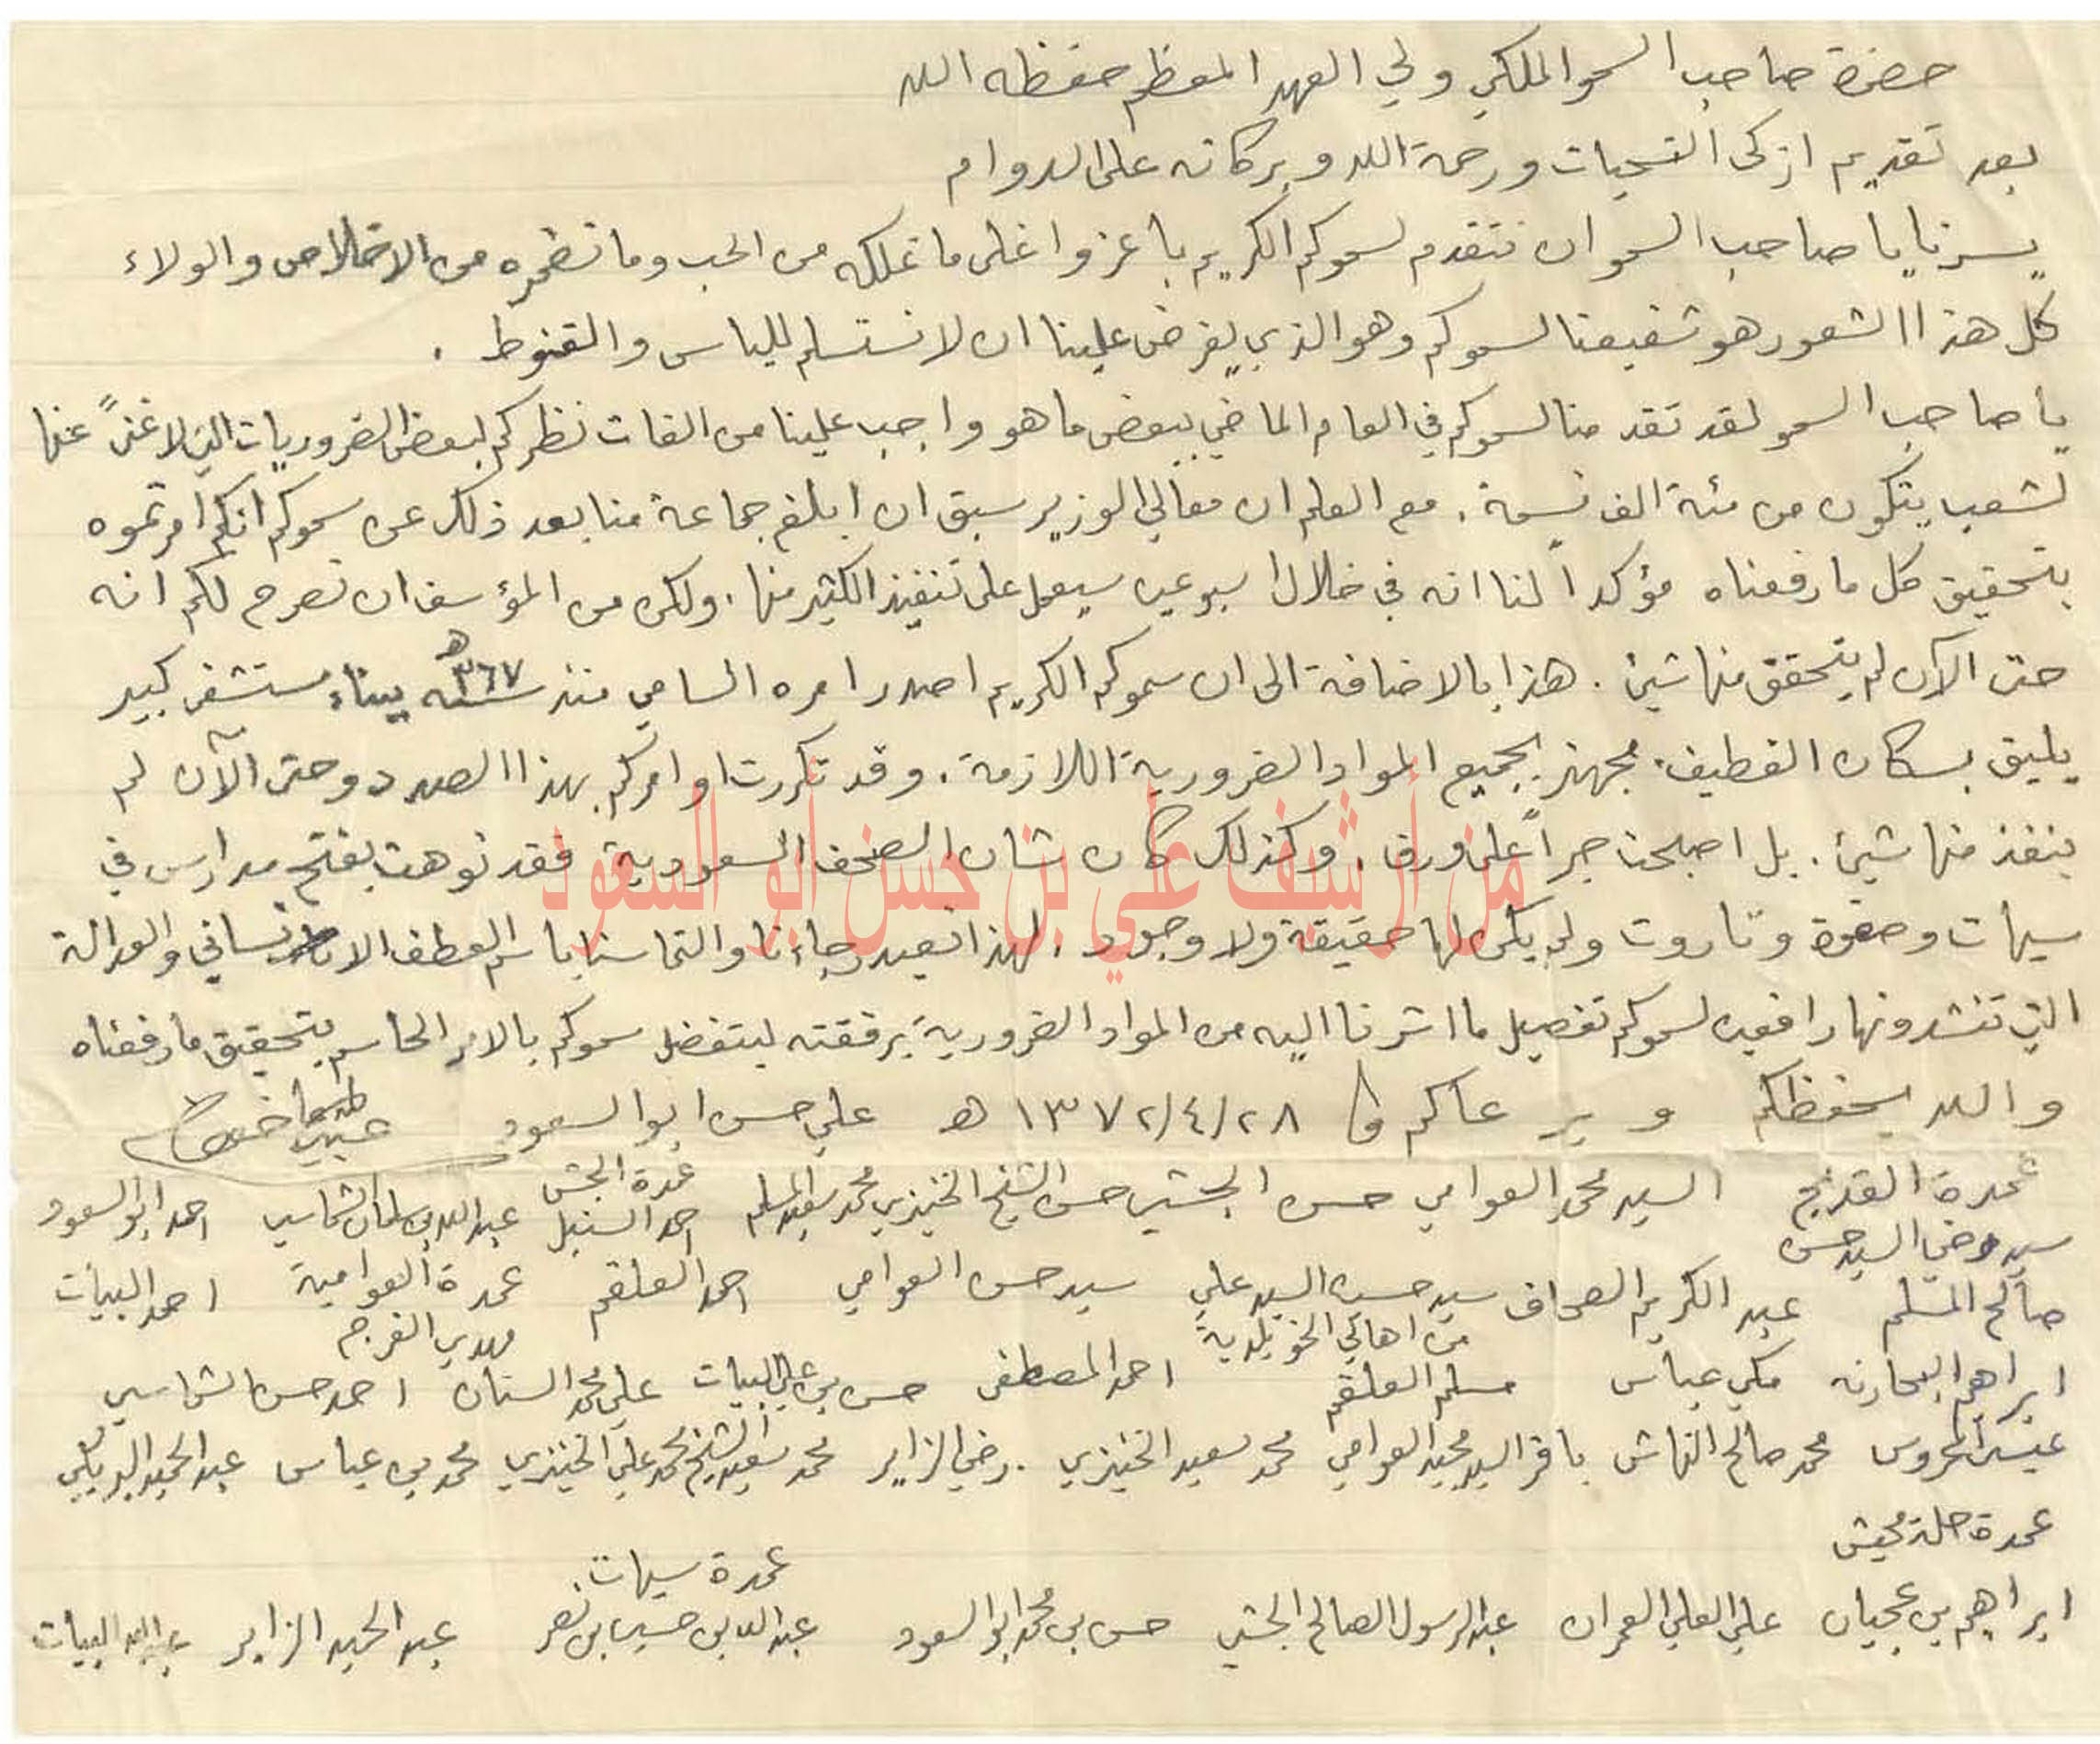 حضرة صاحب السمو الملكي ولي العهد المعظم حفظه الله
بعد تقديم ازكى التحيات ورحمة الله وبركاته على الدوام
يسرنا يا صاحب السمو ان نتقدم لسموكم الكريم باعز واغلى ما نملكه من الحب وما نضمره من الاخلاص والولاء
كل هذا الشعور هو شفيعنا لسموكم وهو الذي يفرض علينا ان لا نستسلم للياس والقنوط .
يا صاحب السمو لقد تقدمنا لسموكم في العام الماضي ببعض ما هو واجب علينا من الفات نظركم لبعض الضروريات التي لا غنىً عنها
لشعب يتكون من مئة الف نسمة . مع العلم ان معالي الوزير سبق ان ابلغ جماعة منا بعد ذلك عن سموكم انكم امرتموه
بتحقيق كل ما رفعناه مؤكداً لنا انه في خلال اسبوعين سيعمل على تنفيذ الكثير منها . ولكن من المؤسف ان نصرح لكم انه
حتى الآن لم يتحقق منها شيئ . هذا بالاضافة الى ان سموكم الكريم اصدر امره السامي منذ سنة ٣٦٧ هـ ببناء مستشفى كبير
يليق بسكان القطيف . مجهز بجميع المواد الضرورية اللازمة . وقد تكررت اوامركم بهذا الصدد وحتى الآن لم
ينفذ منها شيئ . بل اصبحت حبراً على ورق . وكذلك كان شان الصحف السعودية فقد نوهت بفتح مدارس في
سيهات وصفوة وتاروت ولم يكن لها حقيقة ولا وجود . لهذا نعيد رجاءنا والتماسنا باسم العطف الانساني والعدالة
التي تنشدونها رافعين لسموكم تفصيل ما اشرنا اليه من المواد الضرورية برفقته ليتفضل سموكم بالامر الحاسم بتحقيق ما رفعناه
والله يحفظكم ويرعاكم في ١٣٧٢/٤/٢٨ هـ علي حسن ابو السعود
عمدة القديح السيد محمد العوامي حسن الجشي حسن الشيخ الخنيزي محمد سعيد المسلم عمدة الجش احمد السنبل عبدالله بن سلمان الشماسي احمد ابو السعود
سيد رضي السيد حسن
صالح المسلم عبد الكريم الصحاف سيد حسن السيد علي سيد حسن العوامي احمد العلقم عمدة العوامية احمد البيات
من اهالي الخويلدية مهدي الفرج
ابراهيم البحارنه مكي عباس مسلم العلقم احمد المصطفى حسن بن علي البيات علي محمد السنان احمد حسن الشماسي
عيسى المحروس محمد صالح النهاش باقر السيد مجيد العوامي محمد سعيد الخنيزي . رضي الزاير محمد سعيد الشيخ محمد علي الخنيزي محمد بن عباس عبد الحميد
عمدة حلة محيش
عمدة سيهات
ابراهيم بن عجيان علي العلي العمران عبد الرسول الصالح الجشي حسن بن محمد ابو السعود عبدالله بن حسين بن نصر عبد الحميد الزاير عبدالله البيات
من أرشيف علي بن حسن أبو السعود